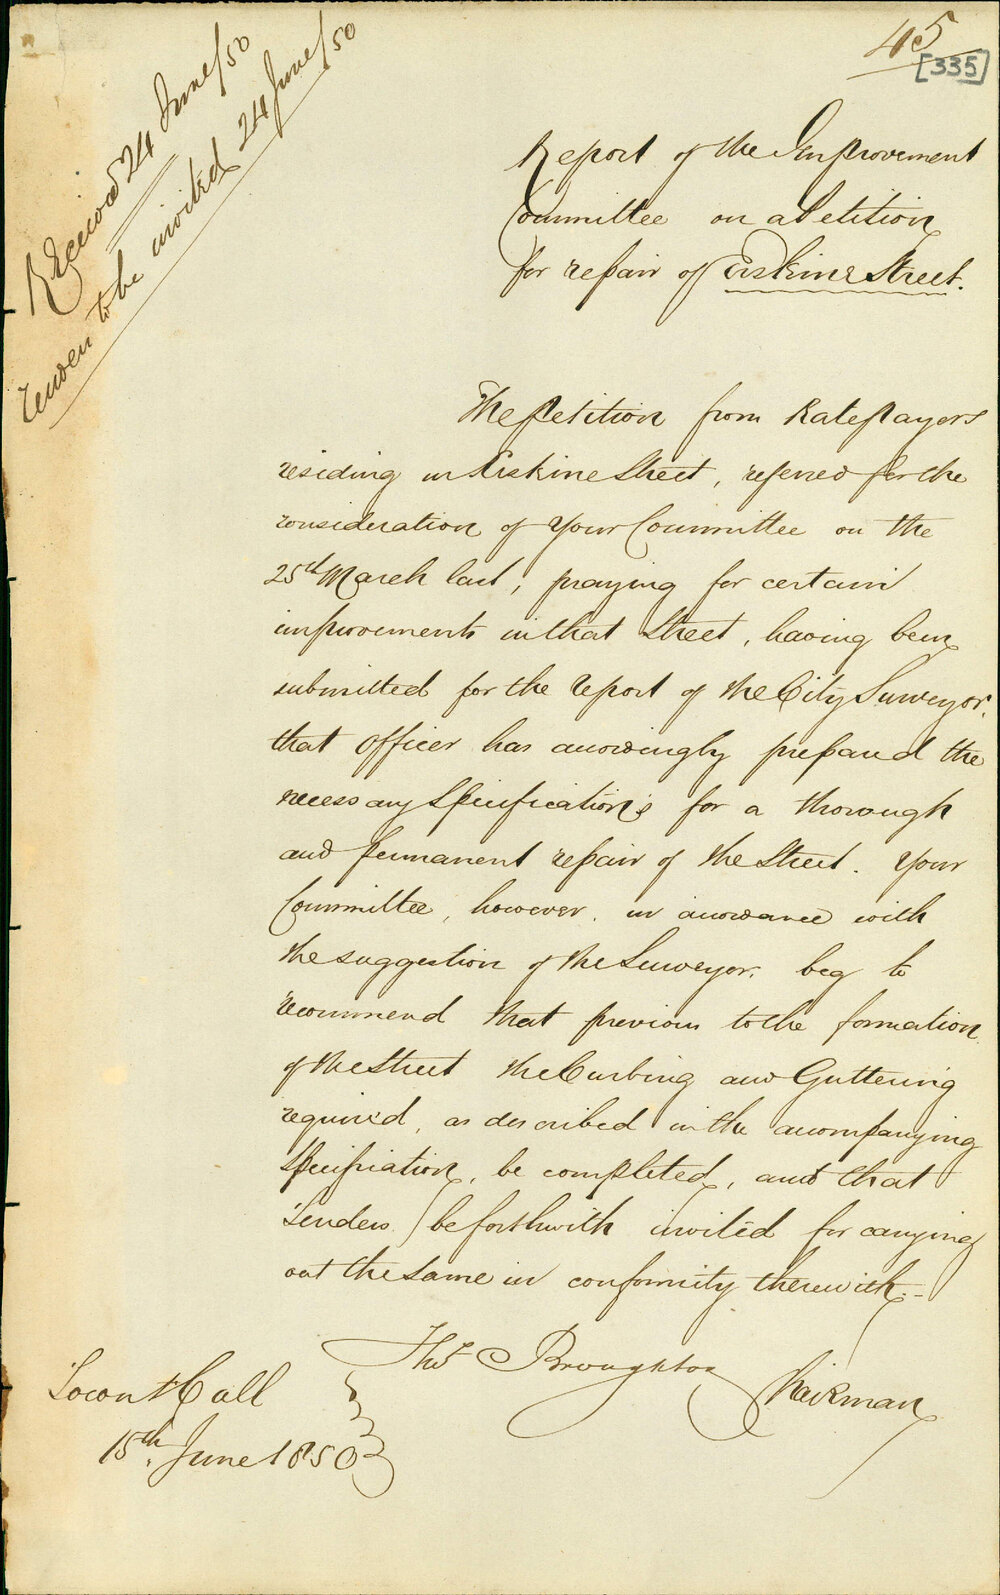 45
[335]
Received 24 June/50
Tender to be invited 24 June/50
Report of the Improvement
Committee on a Petition
for repair of Erskine Street.
The Petition from Ratepayers
residing in Erskine Street, referred for the
consideration of Your Committee on the
25th March last, praying for certain
improvements in that Street, having been
submitted for the report of the City Surveyor,
that Officer has accordingly prepared the
necessary Specifications for a thorough
and permanent repair of the Street. Your
Committee, however, in accordance with
the suggestion of the Surveyor, beg to
recommend that previous to the formation
of the Street the Curbing and Guttering
required, as described in the accompanying
Specification, be completed, and that
Tenders be forthwith invited for carrying
out the same in conformity therewith.
Thos Broughton
Chairman
Town Hall
15th June 1850